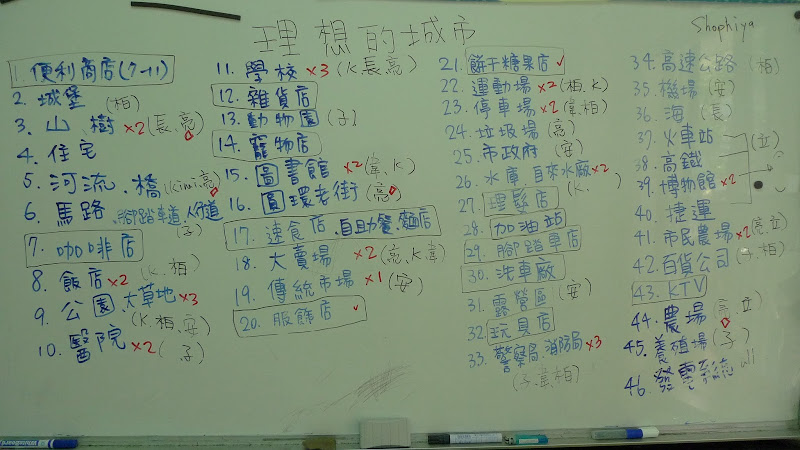 理想的城市
Shophiya
1. 便利商店(7-11)
2. 城堡 (柏)
3. 山、樹 ×2 (長、亮)
4. 住宅
5. 河流、橋 (Kimi亮)
6. 馬路、腳踏車道、人行道
(子)
7. 咖啡店
8. 飯店 ×2 (K.柏)
9. 公園、大草地 ×3
(K.柏、安)
10. 醫院 ×2 ( 子)
11. 學校 ×3 (K長亮)
12. 雜貨店
13. 動物園 (子)
14. 寵物店
15. 圖書館 ×2 (韋、K)
16. 圓環老街 (亮)
17. 速食店、自助餐、麵店
18. 大賣場 ×2 (亮、K韋)
19. 傳統市場 ×1 (安)
20. 服飾店 ✓
21. 餅干糖果店 ✓
22. 運動場 ×2 (柏、K)
23. 停車場 ×2 (韋、柏)
24. 垃圾場 (亮)
25. 市政府 (安)
26. 水庫、自來水廠 ×2
(K. )
27. 理髮店
28. 加油站
29. 腳踏車店
30. 洗車廠
31. 露營區 (安)
32. 玩具店
33. 警察局、消防局 ×3
(子、韋、柏)
34. 高速公路 (柏)
35. 機場 (安)
36. 海 (長)
37. 火車站 (立)
38. 高鐵
39. 博物館 ×2
40. 捷運
41. 市民農場 ×2 (亮、立)
42. 百貨公司 (子.柏)
43. KTV
44. 農場 (亮、立)
45. 養殖場 (子)
46. 發電系統 all